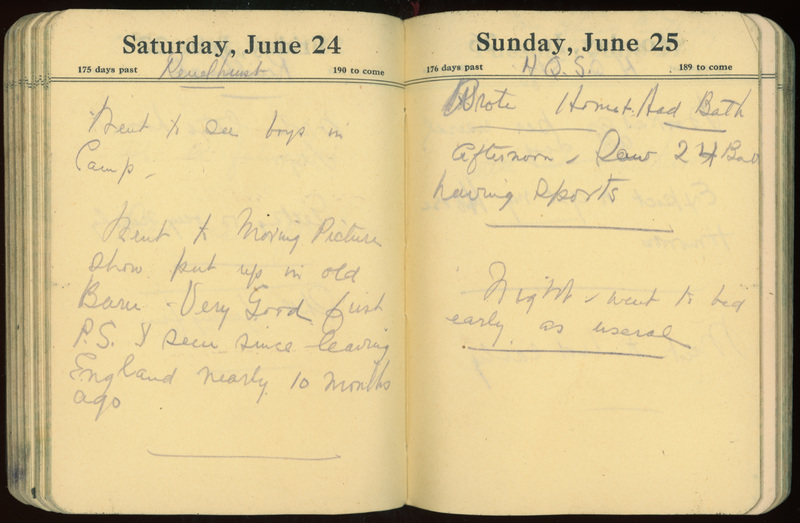 Saturday, June 24
175 days past
190 to come
Went to see boys in
Camp.
Went to Moving Picture
show put up in old
Barn - Very Good first
P.S. I seen since leaving
England nearly 10 months
ago
Sunday, June 25
176 days past H.Q.S. 189 to come
Wrote Home & Had Bath
Afternoon - Saw 24 Bat
having Sports
Night - went to bed
early as useral